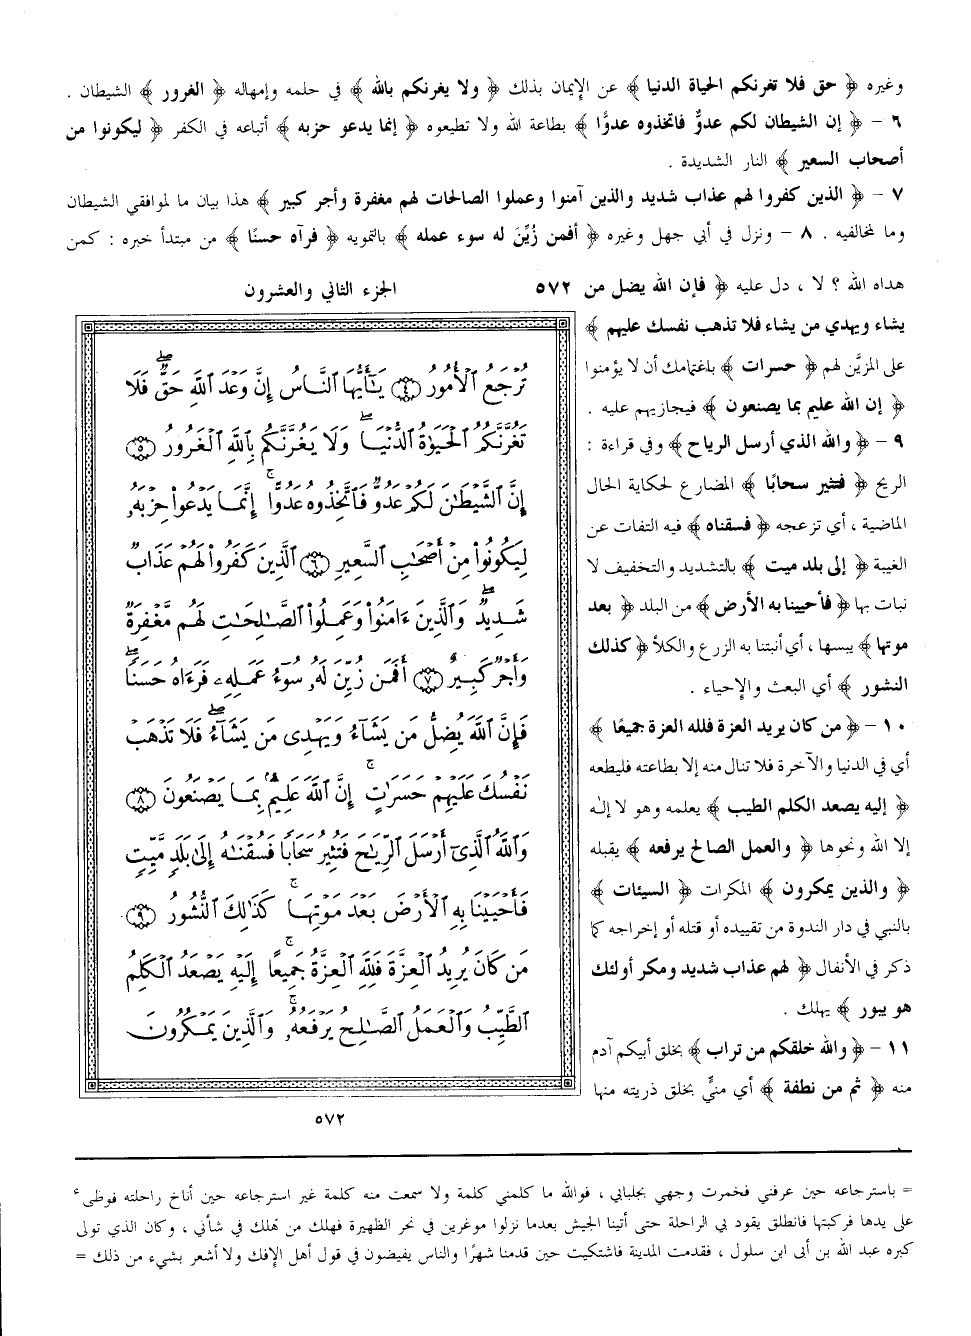 وغيره ﴿ حق فلا تغرنكم الحياة الدنيا ﴾ عن الإيمان بذلك ﴿ ولا يغرنكم بالله ﴾ في حلمه وإمهاله ﴿ الغرور ﴾ الشيطان .
٦ - ﴿ إن الشيطان لكم عدوٌ فاتخذوه عدوًّا ﴾ بطاعة الله ولا تطيعوه ﴿ إنما يدعو حزبه ﴾ أتباعه في الكفر ﴿ ليكونوا من
أصحاب السعير ﴾ النار الشديدة .
٧ - ﴿ الذين كفروا لهم عذاب شديد والذين آمنوا وعملوا الصالحات لهم مغفرة وأجر كبير ﴾ هذا بيان ما لموافقي الشيطان
وما لمخالفيه . ٨ - ونزل في أبي جهل وغيره ﴿ أفمن زُيِّنَ له سوء عمله ﴾ بالتمويه ﴿ فرآه حسنًا ﴾ من مبتدأ خبره : كمن
هداه الله ؟ لا ، دل عليه ﴿ فإن الله يضل من
يشاء ويهدي من يشاء فلا تذهب نفسك عليهم ﴾
على المزيَّن لهم ﴿ حسرات ﴾ باغتمامك أن لا يؤمنوا
﴿ إن الله عليم بما يصنعون ﴾ فيجازيهم عليه .
٩ - ﴿ والله الذي أرسل الرياح ﴾ وفي قراءة :
الريح ﴿ فتثير سحابًا ﴾ المضارع لحكاية الحال
الماضية ، أي تزعجه ﴿ فسقناه ﴾ فيه التفات عن
الغيبة ﴿ إلى بلد ميت ﴾ بالتشديد والتخفيف لا
نبات بها ﴿ فأحيينا به الأرض ﴾ من البلد ﴿ بعد
موتها ﴾ يبسها ، أي أنبتنا به الزرع والكلأ ﴿ كذلك
النشور ﴾ أي البعث والإحياء .
١٠ - ﴿ من كان يريد العزة فلله العزة جميعًا ﴾
أي في الدنيا والآخرة فلا تنال منه إلا بطاعته فليطعه
﴿ إليه يصعد الكلم الطيب ﴾ يعلمه وهو لا إله
إلا الله ونحوها ﴿ والعمل الصالح يرفعه ﴾ يقبله
﴿ والذين يمكرون ﴾ المكرات ﴿ السيئات ﴾
بالنبي في دار الندوة من تقييده أو قتله أو إخراجه كما
ذكر في الأنفال ﴿ لهم عذاب شديد ومكر أولئك
هو يبور ﴾ يهلك .
١١ - ﴿ والله خلقكم من تراب ﴾ بخلق أبيكم آدم
منه ﴿ ثم من نطفة ﴾ أي منيٍّ بخلق ذريته منها
٥٧٢ الجزء الثاني والعشرون
تُرْجَعُ ٱلْأُمُورُ ﴿٤﴾ يَـٰٓأَيُّهَا ٱلنَّاسُ إِنَّ وَعْدَ ٱللَّهِ حَقٌّ ۖ فَلَا
تَغُرَّنَّكُمُ ٱلْحَيَوٰةُ ٱلدُّنْيَا ۖ وَلَا يَغُرَّنَّكُم بِٱللَّهِ ٱلْغَرُورُ ﴿٥﴾
إِنَّ ٱلشَّيْطَـٰنَ لَكُمْ عَدُوٌّ فَٱتَّخِذُوهُ عَدُوًّا ۚ إِنَّمَا يَدْعُوا۟ حِزْبَهُۥ
لِيَكُونُوا۟ مِنْ أَصْحَـٰبِ ٱلسَّعِيرِ ﴿٦﴾ ٱلَّذِينَ كَفَرُوا۟ لَهُمْ عَذَابٌ
شَدِيدٌ ۖ وَٱلَّذِينَ ءَامَنُوا۟ وَعَمِلُوا۟ ٱلصَّـٰلِحَـٰتِ لَهُم مَّغْفِرَةٌ
وَأَجْرٌ كَبِيرٌ ﴿٧﴾ أَفَمَن زُيِّنَ لَهُۥ سُوٓءُ عَمَلِهِۦ فَرَءَاهُ حَسَنًا ۖ
فَإِنَّ ٱللَّهَ يُضِلُّ مَن يَشَآءُ وَيَهْدِى مَن يَشَآءُ ۖ فَلَا تَذْهَبْ
نَفْسُكَ عَلَيْهِمْ حَسَرَٰتٍ ۚ إِنَّ ٱللَّهَ عَلِيمٌۢ بِمَا يَصْنَعُونَ ﴿٨﴾
وَٱللَّهُ ٱلَّذِىٓ أَرْسَلَ ٱلرِّيَـٰحَ فَتُثِيرُ سَحَابًا فَسُقْنَـٰهُ إِلَىٰ بَلَدٍ مَّيِّتٍ
فَأَحْيَيْنَا بِهِ ٱلْأَرْضَ بَعْدَ مَوْتِهَا ۚ كَذَٰلِكَ ٱلنُّشُورُ ﴿٩﴾
مَن كَانَ يُرِيدُ ٱلْعِزَّةَ فَلِلَّهِ ٱلْعِزَّةُ جَمِيعًا ۚ إِلَيْهِ يَصْعَدُ ٱلْكَلِمُ
ٱلطَّيِّبُ وَٱلْعَمَلُ ٱلصَّـٰلِحُ يَرْفَعُهُۥ ۚ وَٱلَّذِينَ يَمْكُرُونَ
٥٧٢
= باسترجاعه حين عرفني فخمرت وجهي بجلبابي ، فوالله ما كلمني كلمة ولا سمعت منه كلمة غير استرجاعه حين أناخ راحلته فوطىء
على يدها فركبتها فانطلق يقود بي الراحلة حتى أتينا الجيش بعدما نزلوا موغرين في نحر الظهيرة فهلك من هلك في شأني ، وكان الذي تولى
كبره عبد الله بن أبى ابن سلول ، فقدمت المدينة فاشتكيت حين قدمنا شهرًا والناس يفيضون في قول أهل الإفك ولا أشعر بشيء من ذلك =